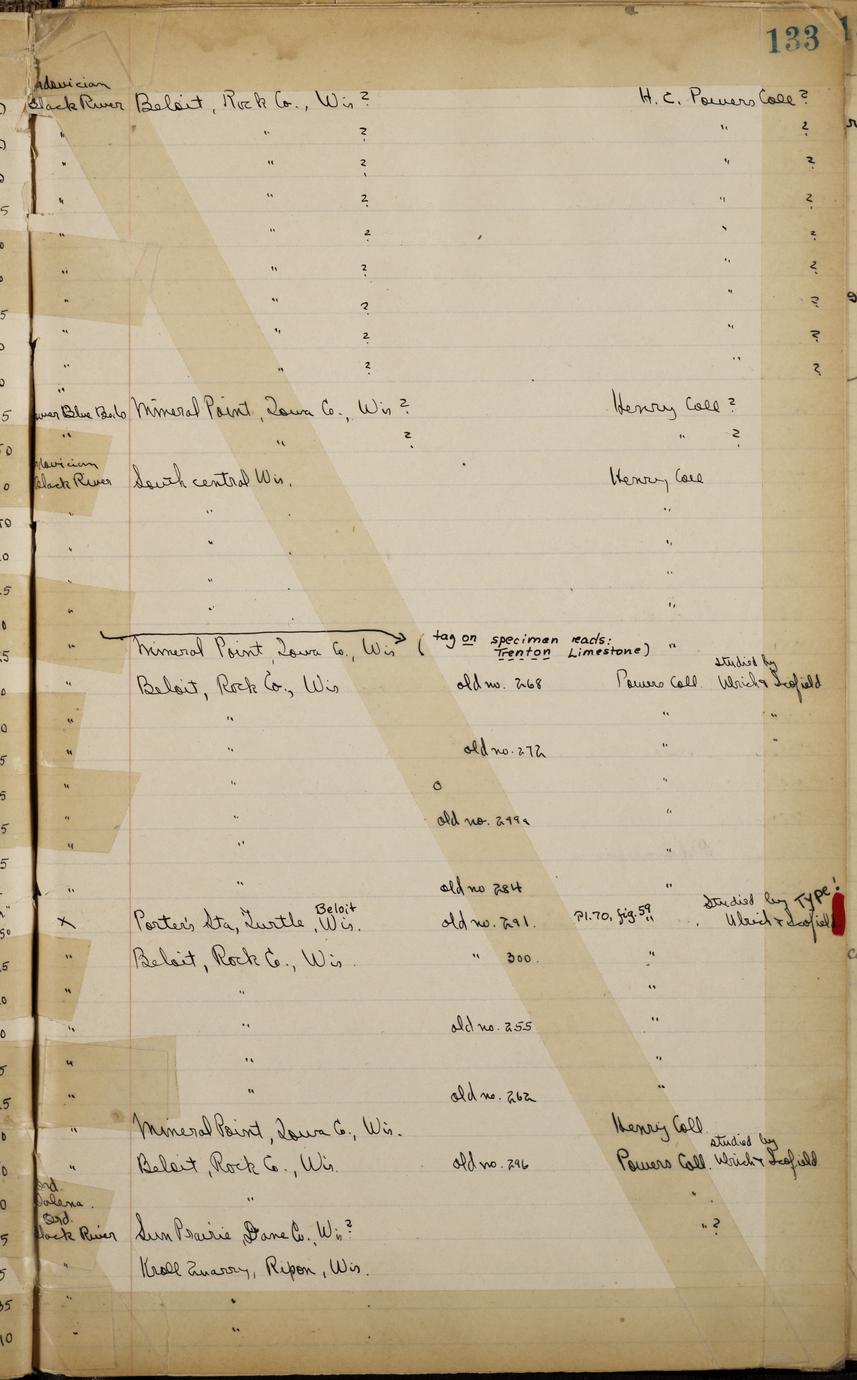 133
Black River Beloit, Rock Co., Wis ? H. C. Powers Coll ?
" " ? " ?
" " ? " ?
" " ? " ?
" " ? " ?
" " ? " ?
" " ? " ?
" " ? " ?
" " ? " ?
"
Blue Beds Mineral Point, Iowa Co., Wis ? Henry Coll ?
" " ? " ?
Black River South central Wis. Henry Coll
" " "
" " "
" " "
" " "
" Mineral Point, Iowa Co., Wis ( tag on specimen reads: "
Trenton Limestone)
studied by
" Beloit, Rock Co., Wis old no. 268 Powers Coll. Ulrich & Scofield
" " " "
" " old no. 272 " "
" " "
" " old no. 299a "
" " "
" " old no 284 "
Studied by Type!
x Porter's Sta, Turtle, Beloit Wis. old no. 291. Pl. 70, fig. 59 " Ulrich & Scofield
" Beloit, Rock Co., Wis. " 300. "
" " "
" " old no. 255 "
" " "
" " old no. 262 "
" Mineral Point, Iowa Co., Wis. Henry Coll.
studied by
" Beloit, Rock Co., Wis. old no. 296 Powers Coll. Ulrich & Scofield
Ord.
Galena. " "
Ord.
Black River Sun Prairie, Dane Co., Wis ? " ?
" Kroll Quarry, Ripon, Wis.
" "
" "